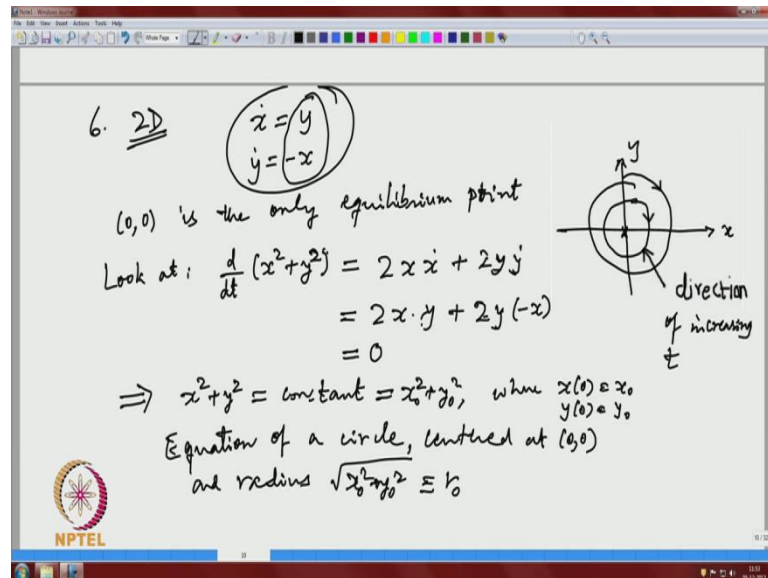 Note1 - Windows Journal
File Edit View Insert Actions Tools Help
Whole Page
B I
6. 2D
ẋ = y
ẏ = -x
(0,0) is the only equilibrium point
Look at: d/dt (x²+y²) = 2xẋ + 2yẏ
= 2x·y + 2y(-x)
= 0
⇒ x²+y² = constant = x₀²+y₀², where x(0) = x₀
y(0) = y₀
Equation of a circle, centred at (0,0)
and radius √x₀²+y₀² ≡ r₀
y
x
direction
of increasing
t
NPTEL
10
11:53